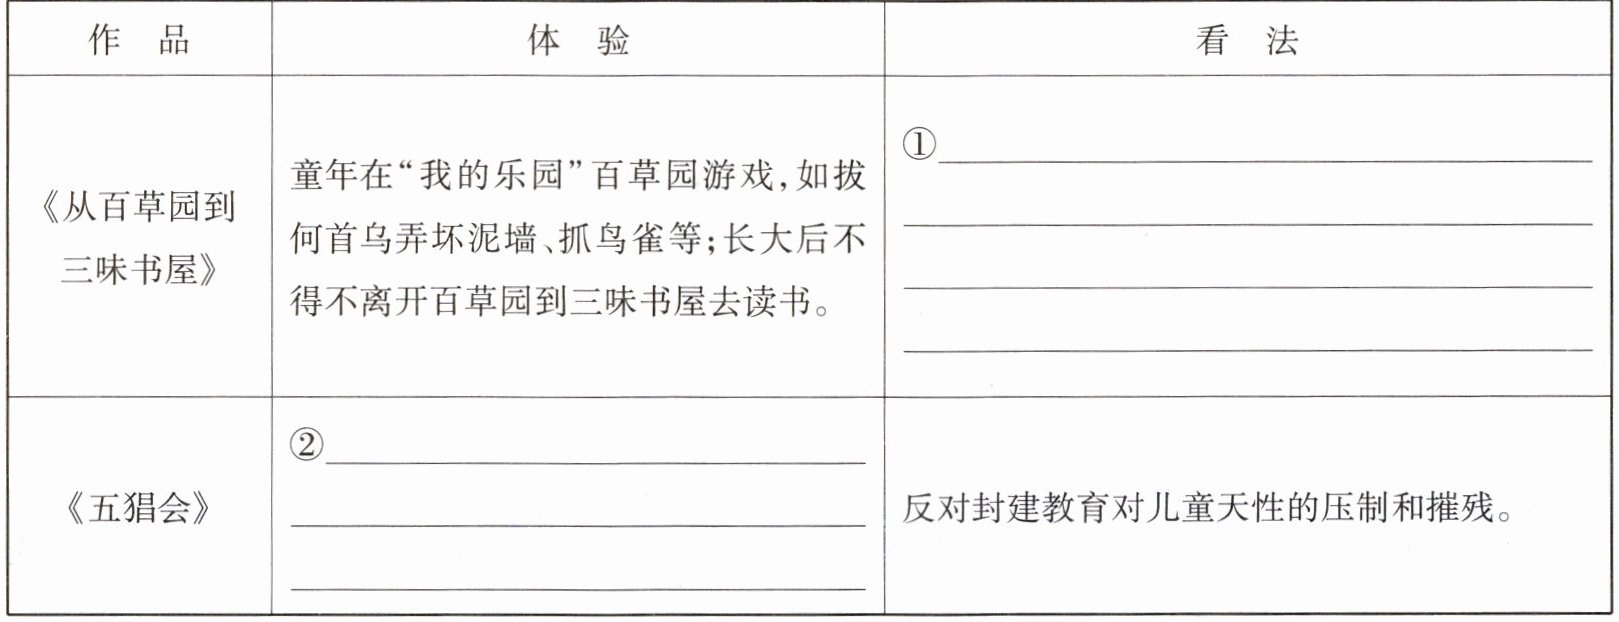 作 品
体 验
看 法
《从百草园到
三味书屋》
童年在“我的乐园”百草园游戏,如拔
何首乌弄坏泥墙、抓鸟雀等;长大后不
得不离开百草园到三味书屋去读书。
①
《五猖会》
②
反对封建教育对儿童天性的压制和摧残。